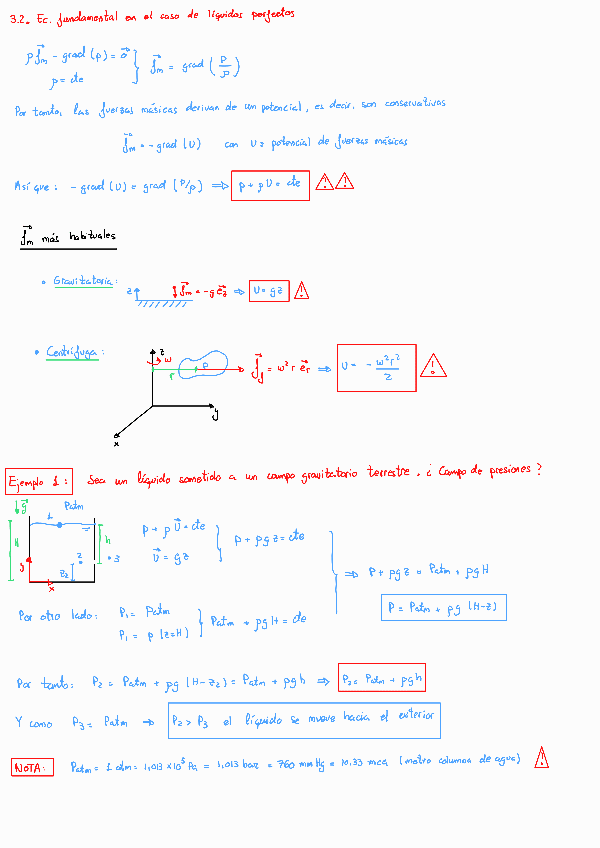 3.2. Ec. fundamental en el caso de líquidos perfectos
ρ f⃗m - grad (p) = 0⃗
ρ = cte
f⃗m = grad (p/ρ)
Por tanto, las fuerzas másicas derivan de un potencial, es decir, son conservativas
f⃗m = - grad (U) con U = potencial de fuerzas másicas
Así que: - grad (U) = grad (P/ρ) ⇒ p + ρ U = cte
f⃗m más habituales
• Gravitatoria:
z f⃗m = -g e⃗z ⇒ U = gz
• Centrífuga:
z
w
r
P
y
x
f⃗g = w² r e⃗r ⇒ U = - w² r² / 2
Ejemplo 1: Sea un líquido sometido a un campo gravitatorio terrestre. ¿Campo de presiones?
↓g⃗
1
Patm
H
h
2
3
z₂
y
x
p + ρ U⃗ = cte
U⃗ = gz
p + ρgz = cte
⇒ P + ρgz = Patm + ρgH
P = Patm + ρg (H-z)
Por otro lado: P₁ = Patm
P₁ = p (z=H)
Patm + ρgH = cte
Por tanto: P₂ = Patm + ρg (H-z₂) = Patm + ρgh ⇒ P₂ = Patm + ρgh
Y como P₃ = Patm → P₂ > P₃ el líquido se mueve hacia el exterior
NOTA: Patm = 1 atm = 1,013 x10⁵ Pa = 1,013 bar = 760 mmHg = 10,33 mca (metro columna de agua)